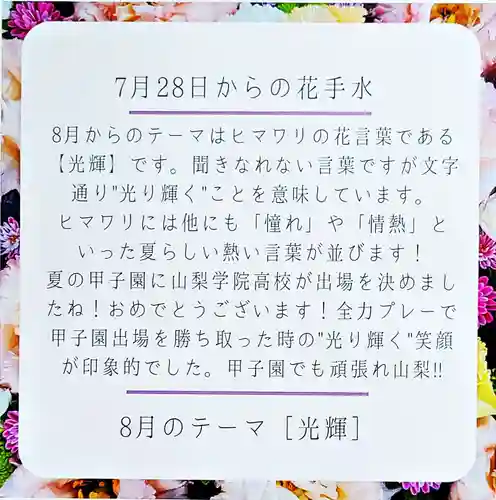 7月28日からの花手水
8月からのテーマはヒマワリの花言葉である
【光輝】です。聞きなれない言葉ですが文字
通り"光り輝く"ことを意味しています。
ヒマワリには他にも「憧れ」や「情熱」と
いった夏らしい熱い言葉が並びます！
夏の甲子園に山梨学院高校が出場を決めまし
たね！おめでとうございます！全力プレーで
甲子園出場を勝ち取った時の"光り輝く"笑顔
が印象的でした。甲子園でも頑張れ山梨!!
8月のテーマ［光輝］